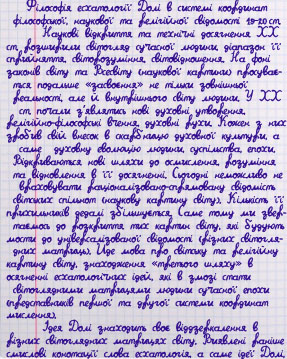 Філософія есхатології Долі в системі координат
філософської, наукової та релігійної свідомості 19-20 ст.
Наукові відкриття та технічні досягнення XX
ст. розширили світогляд сучасної людини, діапазон її
сприйняття, світорозуміння, світовідношення. На фоні
законів світу та Всесвіту (наукової картини) продовжує-
ться подальше "засвоєння" не тільки зовнішньої
реальності, але й внутрішнього світу людини. У XX
ст. почали з'являтись нові духовні утворення,
релігійно-філософські вчення, духовні рухи. Кожен з них
зробив свій внесок в скарбницю духовної культури, а
саме духовну еволюцію людини, суспільства, епохи.
Відкриваються нові шляхи до осмислення, розуміння
та відновлення в її досягненні. Сьогодні неможливо не
враховувати раціоналізовано-прямовану свідомість
світських спільнот (наукову картину світу). Кількість її
прихильників дедалі збільшується. Саме тому ми звер-
таємось до розкриття тих картин світу, які будують
мости до універсалізованої свідомості (різних світогля-
дних матриць). Йде мова про світську та релігійну
картину світу, знаходження "третього шляху" в
осягненні есхатологічних ідей, які в змозі стати
світоглядними матрицями людини сучасної епохи
(представників першої та другої системи координат
мислення).
Ідея Долі знаходить своє віддзеркалення в
різних світоглядних матрицях світу. Виявлені раніше
смислові конотації слова есхатологія, а саме ідеї Долі,